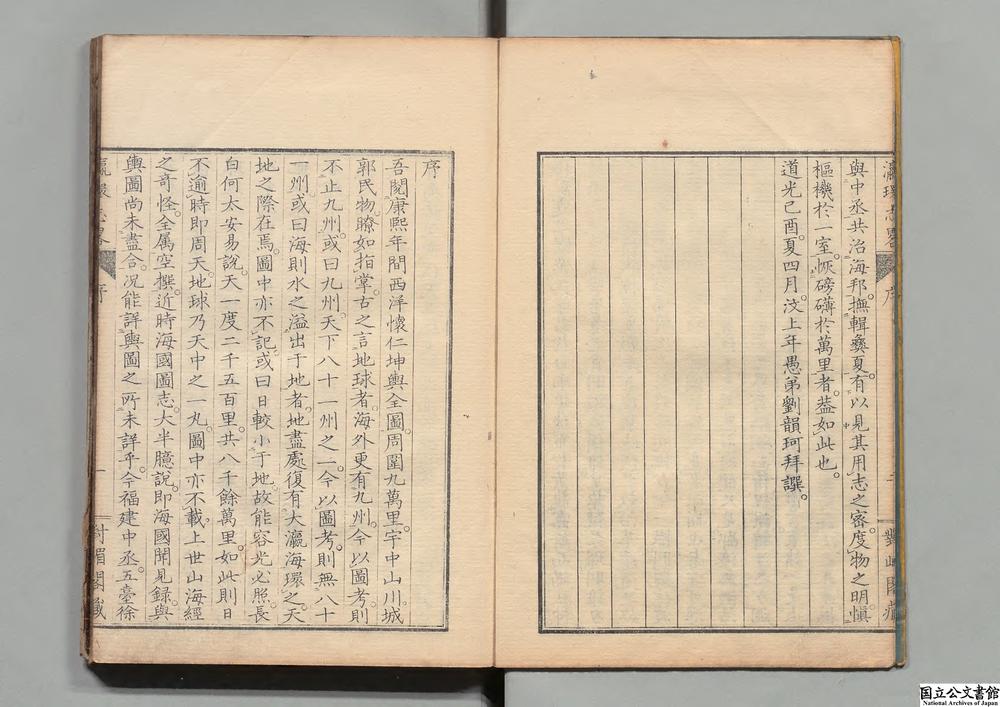 瀛環志畧
序
與中丞共治海邦。撫輯彜夏。有以見其用志之密。度物之明。愼
樞機於一室。恢磅礴於萬里者。葢如此也。
道光己酉。夏四月。汶上年愚弟劉韻珂拜譔。
序
吾閱康熙年間西洋懷仁坤輿全圖。周圍九萬里。宇中山川城
郭民物。瞭如指掌。古之言地球者。海外更有九州。今以圖考。則
不止九州。或曰九州。天下八十一州之一。今以圖考。則無八十
一州。或曰海則水之溢出于地者。地盡處復有大瀛海環之。天
地之際在焉。圖中亦不記。或曰日較小于地。故能容光必照。長
白何太安易說。天一度二千五百里。共八千餘萬里。如此則日
不逾時即周天。地球乃天中之一丸。圖中亦不載。上世山海經
之奇怪。全属空撰。近時海國圖志。大半臆說。即海國聞見録。與
輿圖尚未盡合。况能詳輿圖之所未詳乎。今福建中丞。五臺徐
瀛環志畧
序
一
對嵋閣藏
国立公文書館
National Archives of Japan